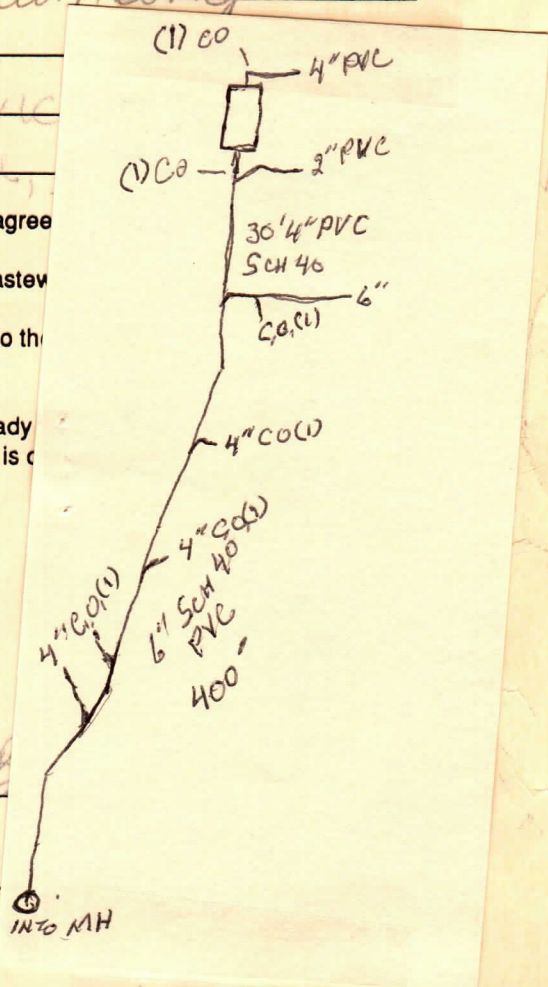 (1) CO
4" PVC
(1) CO
2" PVC
30' 4" PVC
SCH 40
6"
C.O.(1)
4" CO(1)
4" C.O.(1)
6" SCH 40
PVC
400'
4" C.O.(1)
INTO MH
agree
astew
o the
ady
is c